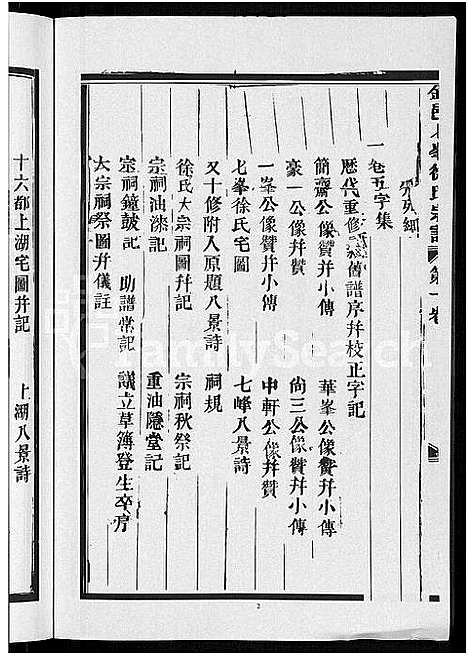 金邑七峯徐氏宗譜 第一卷
一卷五字集
歷代重修舊譜序幷校正字記
簡齋公像贊幷小傳 華峯公像贊幷小傳
豪一公像幷贊 尙三公像贊幷小傳
一峯公像贊幷小傳 中軒公像幷贊
七峯徐氏宅圖 七峰八景詩
又十修附入原題八景詩 祠規
徐氏大宗祠圖幷記 宗祠秋祭記
宗祠油漆記 重油隱堂記
宗祠鐘鼓記 助譜常記 議立草簿登生卒序
大宗祠祭圖幷儀註
十六都上湖宅圖幷記 上湖八景詩
FamilySearch
2